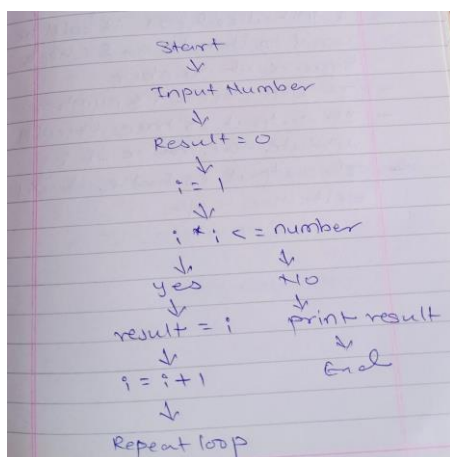 Start
↓
Input Number
↓
Result = 0
↓
i = 1
↓
i * i <= number
↓ ↓
yes No
↓ ↓
result = i print result
↓ ↓
i = i + 1 End
↓
Repeat loop